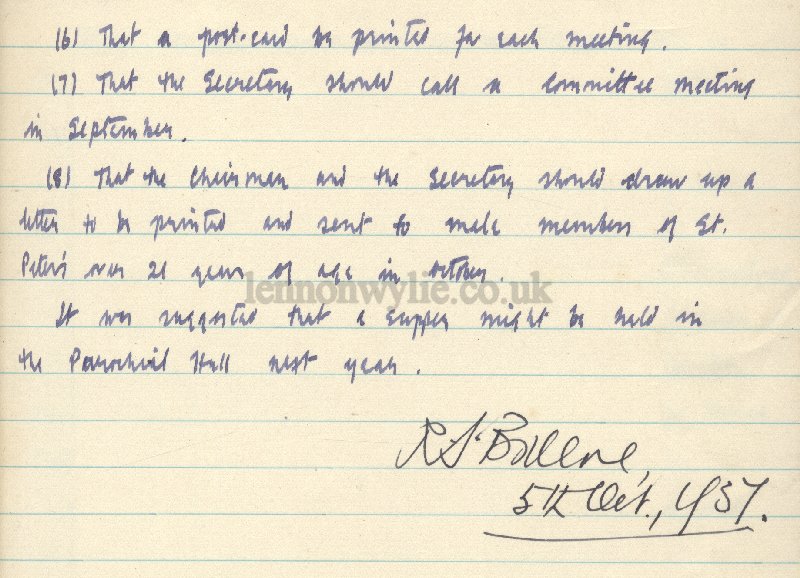 (6) That a post-card be printed for each meeting.
(7) That the Secretary should call a Committee meeting
in September.
(8) That the Chairman and the Secretary should draw up a
letter to be printed and sent to male members of St.
Peter's over 21 years of age in October.
lennonwylie.co.uk
It was suggested that a Supper might be held in
the Parochial Hall next year.
R S
5th Oct., 1957.